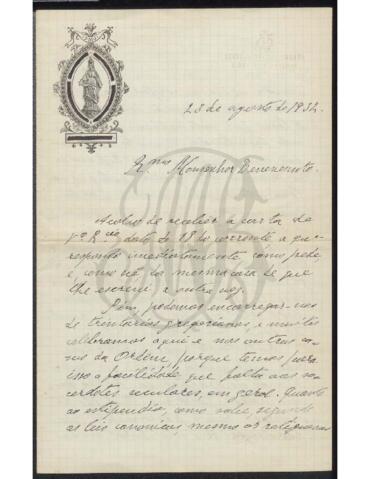 23 de agosto de 1932.
Rmo Monsenhor Benevenuto.
Acabo de receber a carta de
V. R. cia data de 18 do corrente, a que
respondo imediatamente como pede
e como da mesma casa se que
lhe escrevi a outra vez.
Sim, podemos encarregar-nos
de trintarios gregorianos, e muitos
celebramos aqui e nas outras ca-
sas da Ordem, porque temos para
isso a facilidade que falta aos sa-
cerdotes seculares, em geral. Quanto
ao estipendio, como sabe, segundo
as leis canonicas mesmo os religiosos